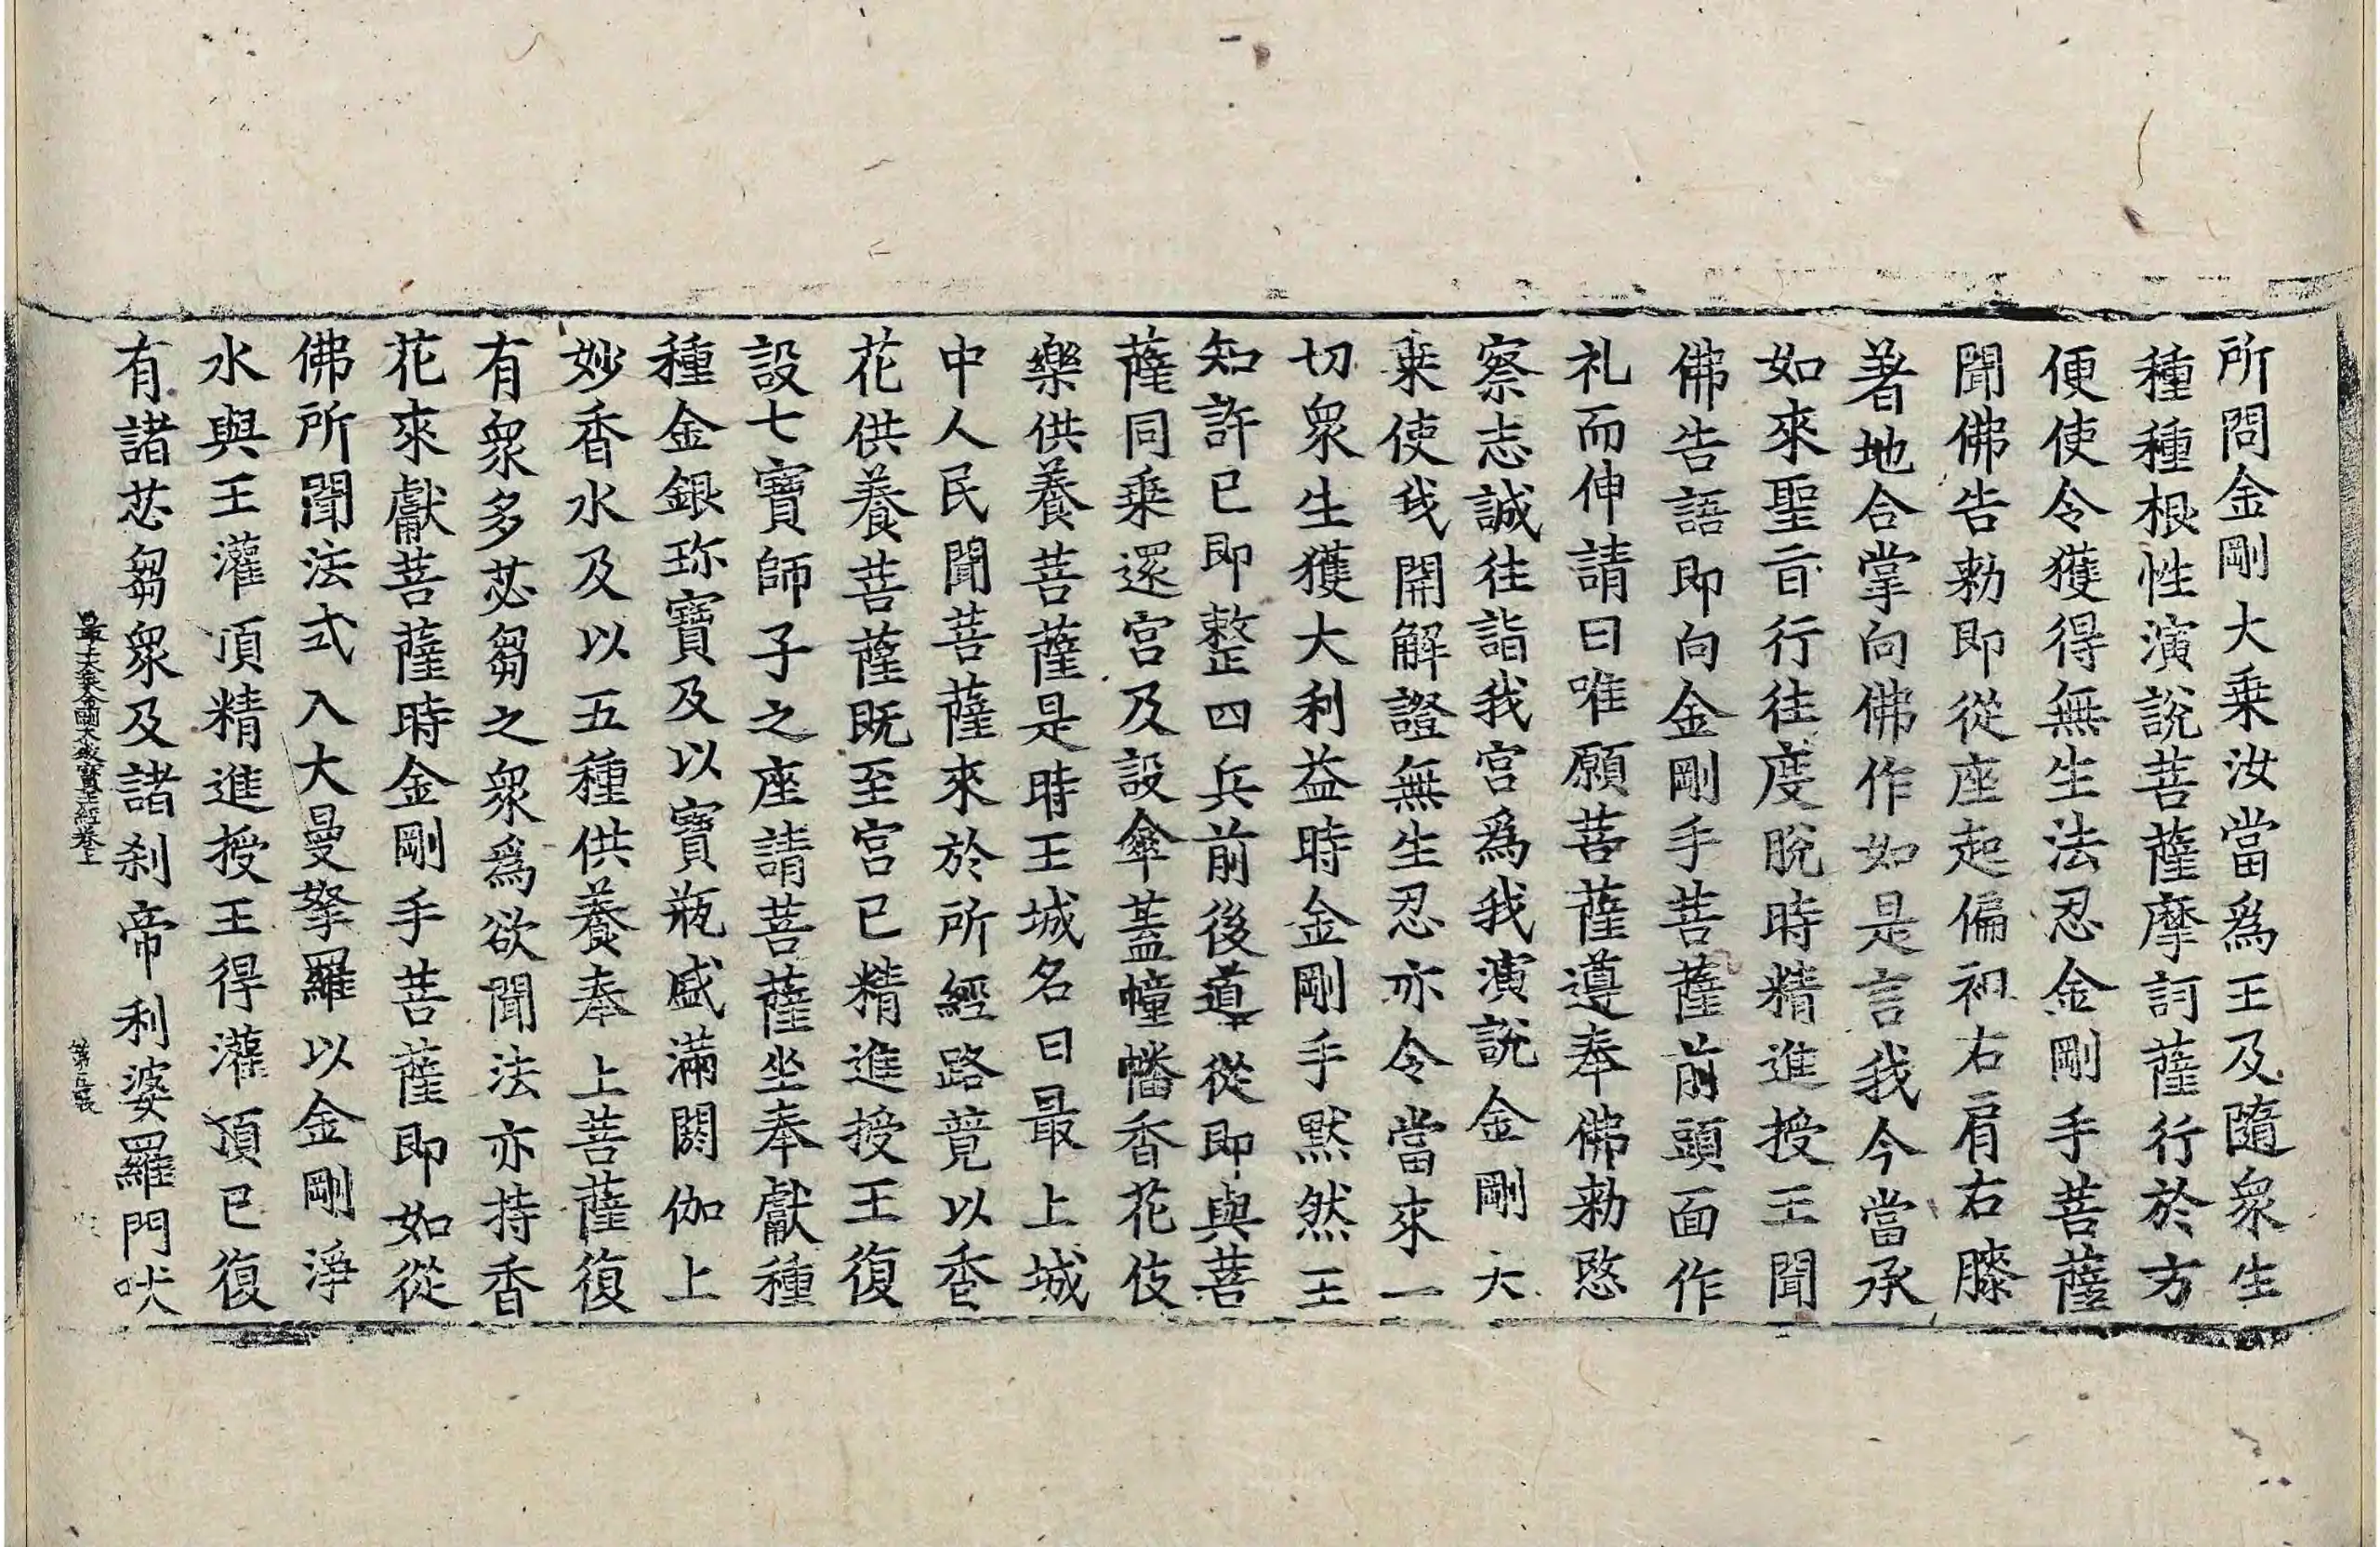 所問金剛大乗汝當爲王及隨衆生
種種根性演說菩薩摩訶薩行於方
便使令獲得無生法忍金剛手菩薩
聞佛告勑即從座起偏袒右肩右膝
著地合掌向佛作如是言我今當承
如來聖旨行往度脫時精進授王聞
佛告語即向金剛手菩薩前頭面作
礼而伸請曰唯願菩薩遵奉佛勑愍
察志誠往詣我宮爲我演說金剛大
乗使我開解證無生忍亦令當來一
切衆生獲大利益時金剛手黙然王
知許已即整四兵前後導從即與菩
薩同乗還宮及設傘蓋幢幡香花伎
樂供養菩薩是時王城名曰最上城
中人民聞菩薩來於所經路竟以香
花供養菩薩既至宮已精進授王復
設七寶師子之座請菩薩坐奉獻種
種金銀珎寶及以寶瓶盛滿閼伽上
妙香水及以五種供養奉上菩薩復
有衆多苾芻之衆爲欲聞法亦持香
花來獻菩薩時金剛手菩薩即如從
佛所聞法式入大曼拏羅以金剛淨
水與王灌頂精進授王得灌頂已復
有諸苾芻衆及諸刹帝利婆羅門吠
最上大乗金剛大教寶王經卷上 第五張